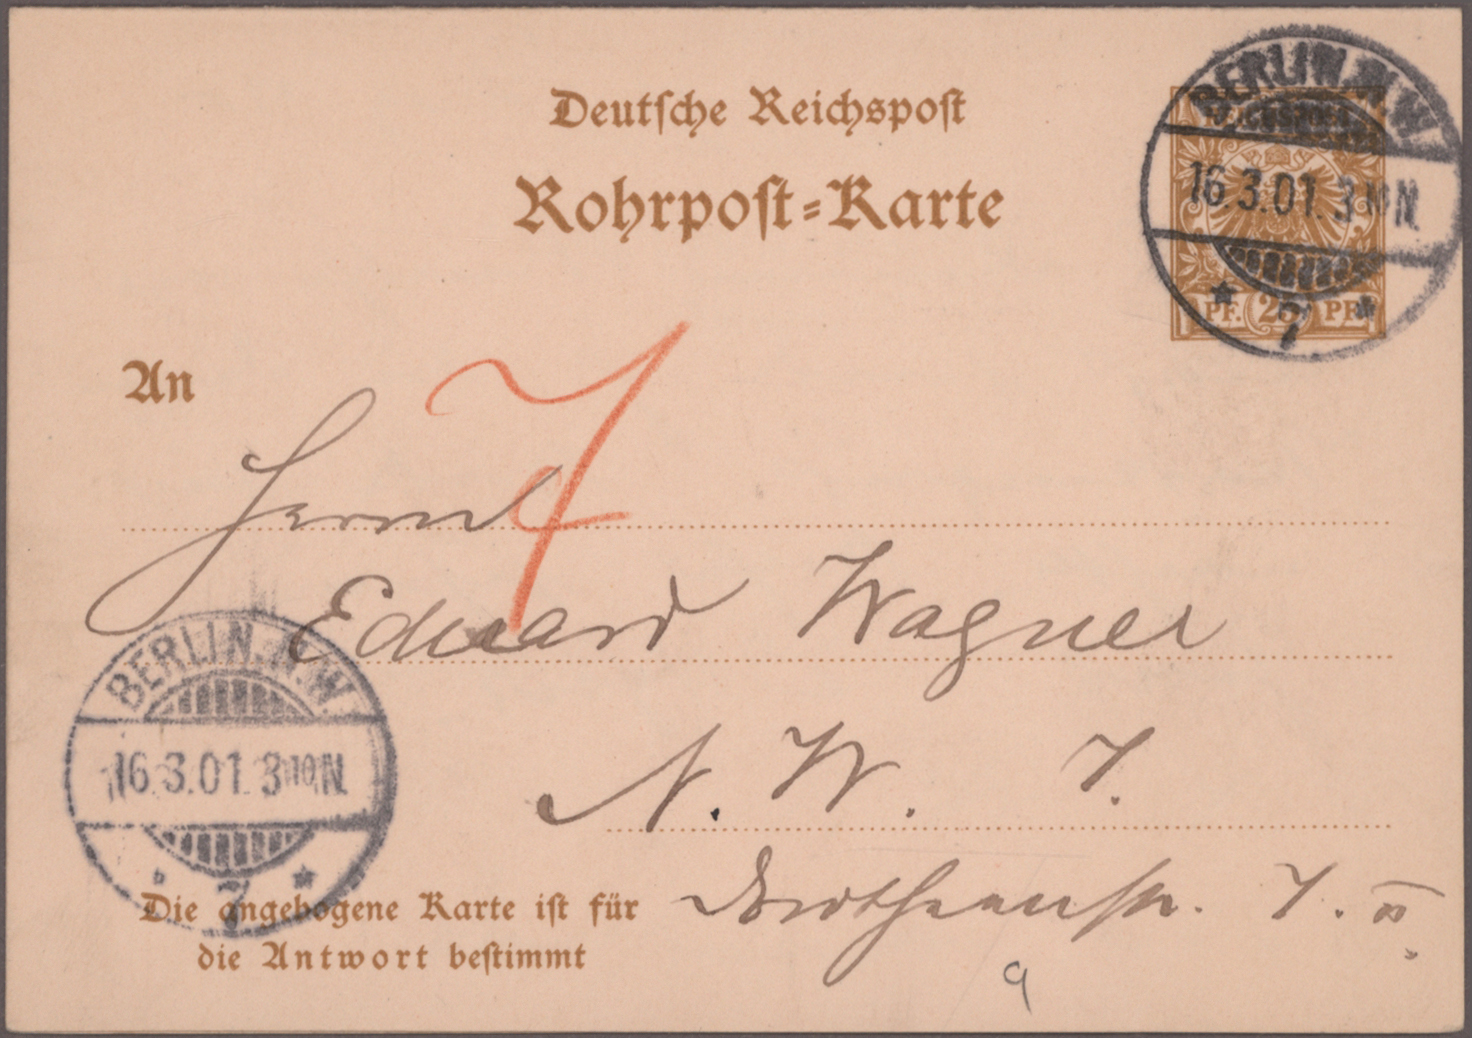 Deutsche Reichspost
Rohrpost-Karte
BERLIN. N.W.
REICHSPOST
16.3.01. 3 10 N.
* 7 *
PF. 25 PF.
An
7
Herrn
Eduard Wagner
N. W. 7.
Dorotheenstr. 7. II
BERLIN. N.W.
16.3.01. 3 10 N.
* 7 *
Die angebogene Karte ist für
die Antwort bestimmt